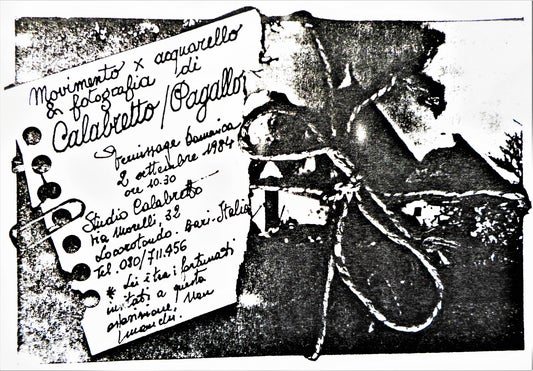 Movimento x acquarello
& fotografia di
Calabretto/Pagallo
Vernissage Domenica
2 settembre 1984
ore 10.30
Studio Calabretto
Via Morelli, 32
Locorotondo. Bari-Italia
Tel. 080/711.956
* Lei è tra i fortunati
invitati a questa
Non
manchi.